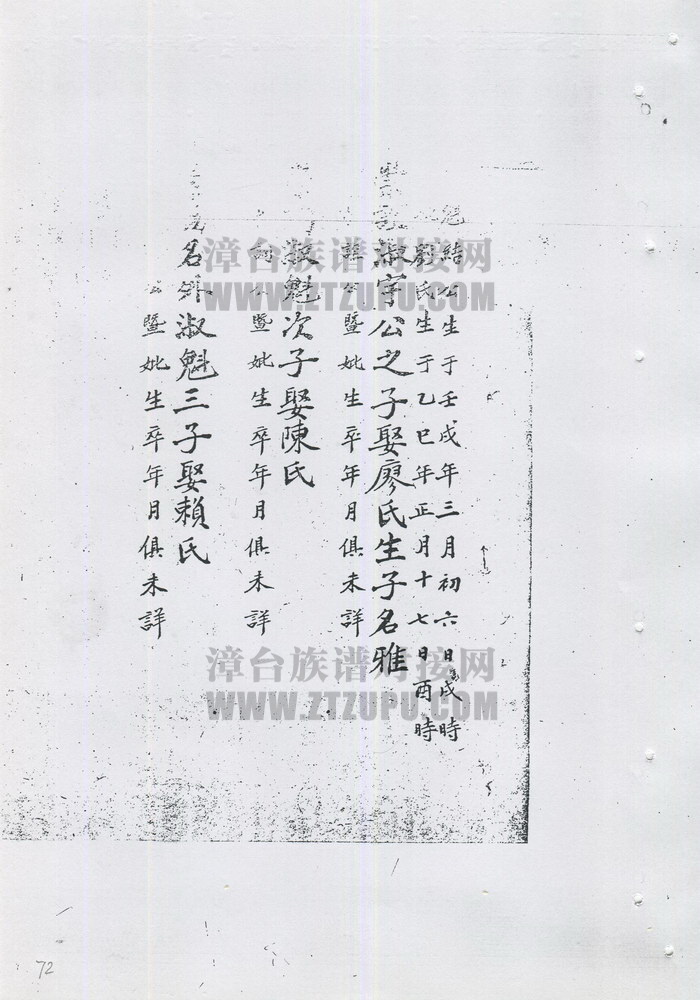 魁結公生于壬戌年三月初六日戌時
劉氏生于乙巳年正月十七日酉時
淑字公之子娶廖氏生子名雅
公暨妣生卒年月俱未詳
淑魁次子娶陳氏
公暨妣生卒年月俱未詳
名外淑魁三子娶賴氏
公暨妣生卒年月俱未詳
漳台族谱对接网
WWW.ZTZUPU.COM
漳台族谱对接网
WWW.ZTZUPU.COM
72